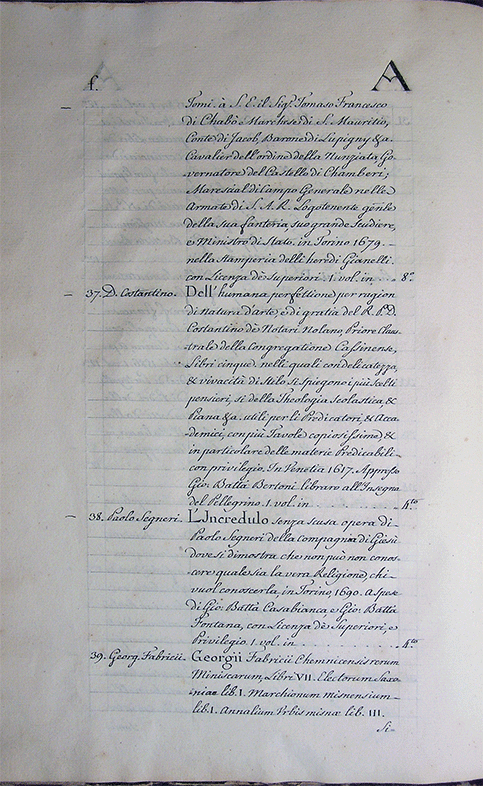 f. A
Tomi. à S. E. il Sigr. Tomaso Francesco
di Chabò e Marchese di S. Mauritio,
Conte di Jacob, Barone di Lupigny &a.
Cavalier dell'ordine della Nunziata, Go-
vernatore del Castello di Chamberi;
Maresial di Campo Generale nelle
Armate di S. A. R. Logotenente gen̄le
della sua fanteria, suo grande Scudiere,
e Ministro di Stato. in Torino 1679.
nella stamperia delli heredi Gianelli.
con Licenza de Superiori. 1. vol. in 8o
37. D. Costantino. Dell'humana perfettione, per ragion
di natura d'arte, e di gratia del R. P. D.
Costantino de Notari Nolano, Priore Claus-
trale della Congregatione Cassinense,
Libri cinque. nelli quali con delicatezza,
& vivacità di stilo si spiegono i più scelti
pensieri, si della Theologia Scolastica, &
Piana &a. utili per li Predicatori, & Acca-
demici, con più Tavole copiosissime, &
in particolare delle materie Predicabili-
con privilegio. In Venetia 1617. Appresso
Gio: Batta Bertoni libraro all'Insegna
del Pellegrino. 1. vol. in 4.to
38. Paolo Segneri. L'Jncredulo senza scusa opera di
Paolo Segneri della Compagnia di Giesù
dove si dimostra che non può non conos-
cere quale sia la vera Religione, chi
vuol conoscerla, in Torino, 1690. A spese
di Gio: Batta Casabianca e Gio: Batta
Fontana, con Licenza de Superiori, e
Privilegio. 1. vol. in 4.to
39. Georg. Fabricii. Georgii Fabricii Chemnicensis rerum
Miniscarum, Libri VII. Electorum Saxo-
niae lib. I. Marchionum misnensium-
lib. I. Annalium Urbis misnæ lib. III.
Si-